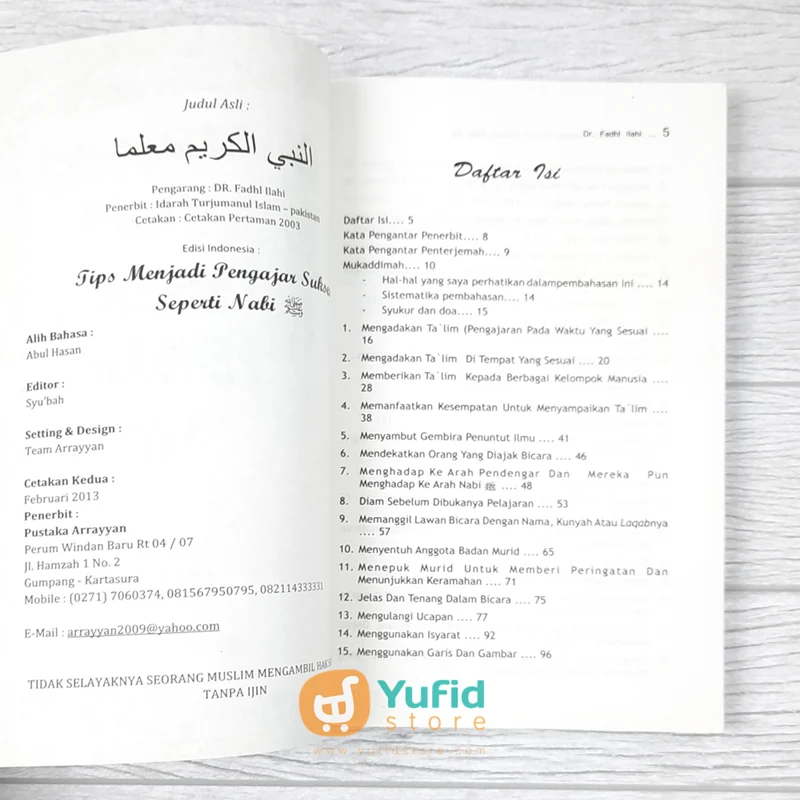 Judul Asli :
النبي الكريم معلما
Pengarang : DR. Fadhl Ilahi
Penerbit : Idarah Turjumanul Islam – pakistan
Cetakan : Cetakan Pertaman 2003
Edisi Indonesia :
Tips Menjadi Pengajar Sukses
Seperti Nabi ﷺ
Alih Bahasa :
Abul Hasan
Editor :
Syu'bah
Setting & Design :
Team Arrayyan
Cetakan Kedua :
Februari 2013
Penerbit :
Pustaka Arrayyan
Perum Windan Baru Rt 04 / 07
Jl. Hamzah 1 No. 2
Gumpang - Kartasura
Mobile : (0271) 7060374, 081567950795, 082114333331
E-Mail : arrayyan2009@yahoo.com
TIDAK SELAYAKNYA SEORANG MUSLIM MENGAMBIL
TANPA IJIN
Dr. Fadhl Ilahi ... 5
Daftar Isi
Daftar Isi.... 5
Kata Pengantar Penerbit.... 8
Kata Pengantar Penterjemah.... 9
Mukaddimah.... 10
- Hal-hal yang saya perhatikan dalampembahasan ini .... 14
- Sistematika pembahasan.... 14
- Syukur dan doa.... 15
1. Mengadakan Ta`lim (Pengajaran Pada Waktu Yang Sesuai ....
16
2. Mengadakan Ta`lim Di Tempat Yang Sesuai .... 20
3. Memberikan Ta`lim Kepada Berbagai Kelompok Manusia ....
28
4. Memanfaatkan Kesempatan Untuk Menyampaikan Ta`lim ....
38
5. Menyambut Gembira Penuntut Ilmu .... 41
6. Mendekatkan Orang Yang Diajak Bicara .... 46
7. Menghadap Ke Arah Pendengar Dan Mereka Pun
Menghadap Ke Arah Nabi ﷺ .... 48
8. Diam Sebelum Dibukanya Pelajaran .... 53
9. Memanggil Lawan Bicara Dengan Nama, Kunyah Atau Laqabnya
.... 57
10. Menyentuh Anggota Badan Murid .... 65
11. Menepuk Murid Untuk Memberi Peringatan Dan
Menunjukkan Keramahan .... 71
12. Jelas Dan Tenang Dalam Bicara .... 75
13. Mengulangi Ucapan .... 77
14. Menggunakan Isyarat .... 92
15. Menggunakan Garis Dan Gambar .... 96
Yufid
store
www.yufidstore.com